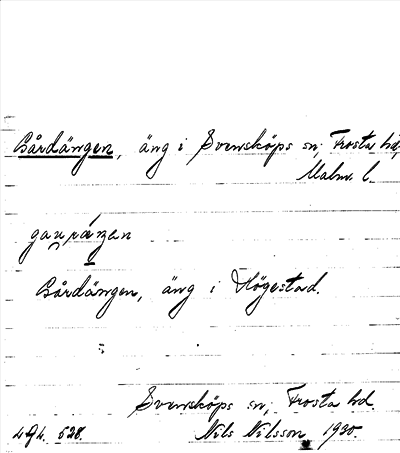 Gårdängen, äng i Svensköps sn, Frosta hd,
Malm. l.
gau̯rängen
Gårdängen, äng i Högestad.
Svensköps sn, Frosta hd.
Nils Nilsson 1930.